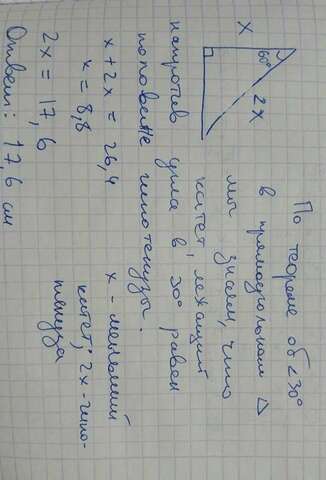 x
60°
2x
По теореме об ∠30°
в прямоугольном △
мы знаем, что
катет, лежащий
напротив угла в 30° равен
половине гипотенузы.
x + 2x = 26,4
x = 8,8
2x = 17,6
x - меньший
катет; 2x - гипо-
тенуза
Ответ: 17,6 см